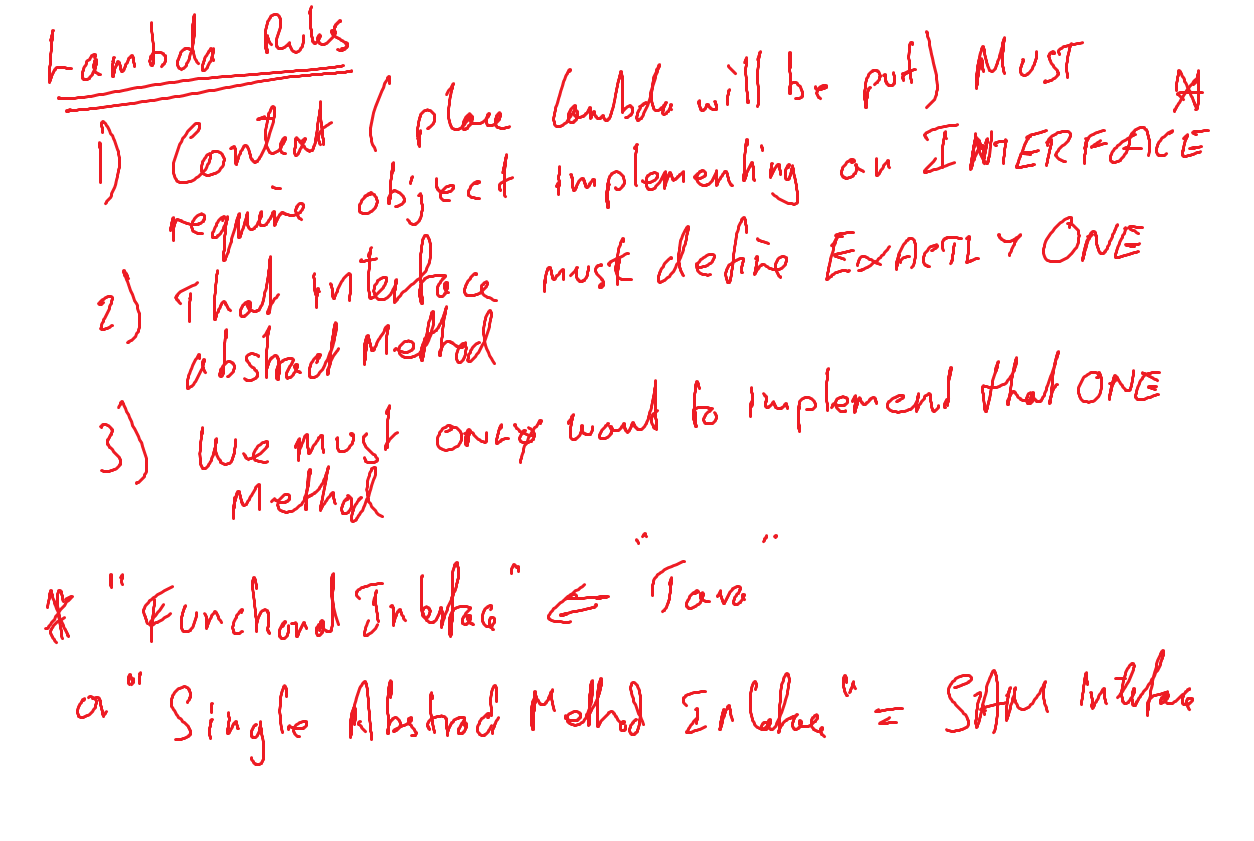 Lambda Rules
1) Context (place lambda will be put) MUST
require object implementing an INTERFACE *
2) That interface must define EXACTLY ONE
abstract Method
3) We must ONLY want to implement that ONE
Method
* "Functional Interface" ⇐ "Java"
a "Single Abstract Method Interface" = SAM Interface